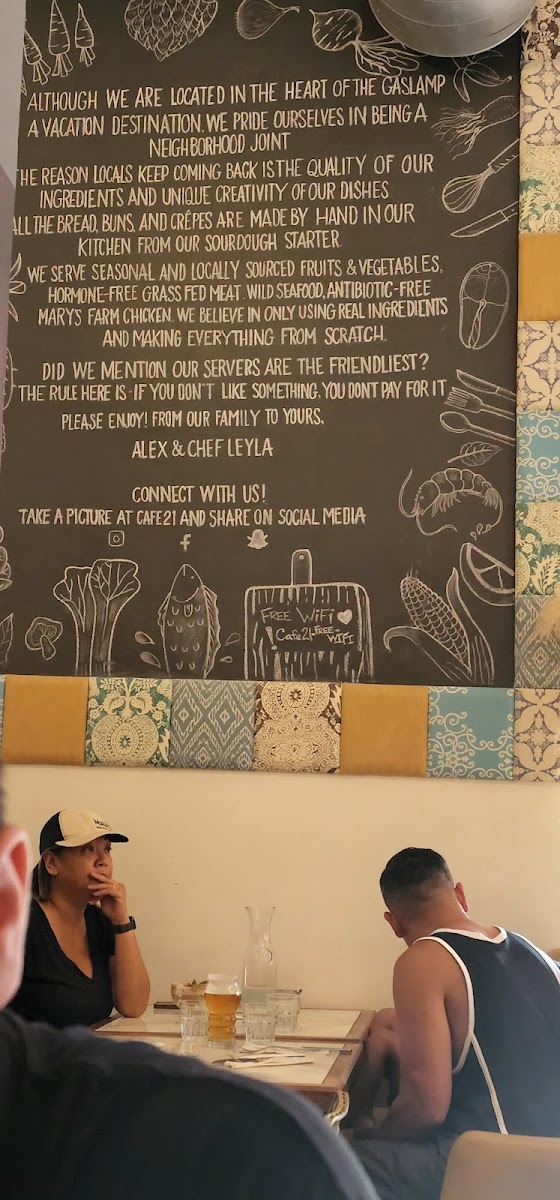 ALTHOUGH WE ARE LOCATED IN THE HEART OF THE GASLAMP
A VACATION DESTINATION, WE PRIDE OURSELVES IN BEING A
NEIGHBORHOOD JOINT
THE REASON LOCALS KEEP COMING BACK IS THE QUALITY OF OUR
INGREDIENTS AND UNIQUE CREATIVITY OF OUR DISHES
ALL THE BREAD, BUNS, AND CRÊPES ARE MADE BY HAND IN OUR
KITCHEN FROM OUR SOURDOUGH STARTER.
WE SERVE SEASONAL AND LOCALLY SOURCED FRUITS & VEGETABLES,
HORMONE-FREE GRASS FED MEAT, WILD SEAFOOD, ANTIBIOTIC-FREE
MARY'S FARM CHICKEN. WE BELIEVE IN ONLY USING REAL INGREDIENTS
AND MAKING EVERYTHING FROM SCRATCH.
DID WE MENTION OUR SERVERS ARE THE FRIENDLIEST?
THE RULE HERE IS - IF YOU DON'T LIKE SOMETHING, YOU DONT PAY FOR IT
PLEASE ENJOY! FROM OUR FAMILY TO YOURS,
ALEX & CHEF LEYLA
CONNECT WITH US!
TAKE A PICTURE AT CAFE21 AND SHARE ON SOCIAL MEDIA
FREE WiFi
Cafe21-FREE-WIFI